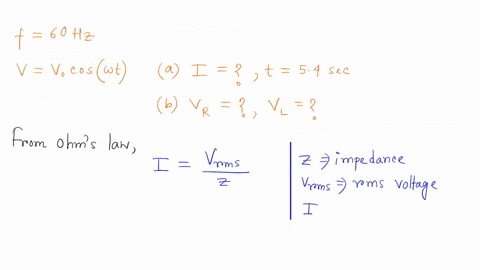 f = 60 Hz
V = V₀ cos(ωt) (a) I = ?, t = 5.4 sec
(b) V_R = ?, V_L = ?
From Ohm's law,
I = V_rms / z
z ⇒ impedance
V_rms ⇒ rms voltage
I